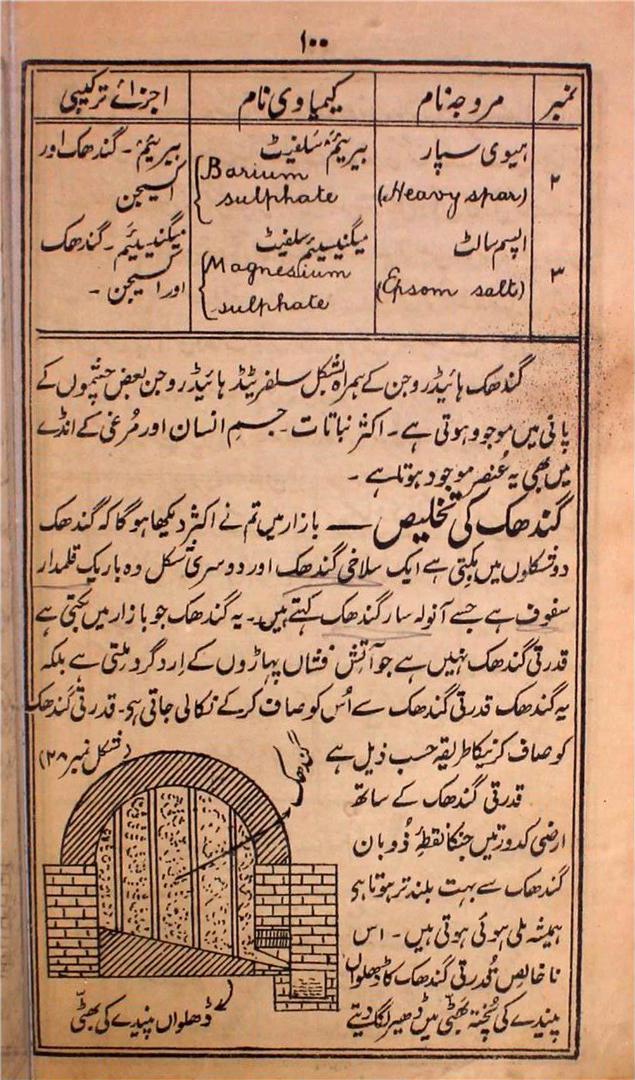 ۱۰۰
نمبر مروجہ نام کیمیاوی نام اجزائے ترکیبی
۲ ہیوی سپار (Heavy spar) بیریئم سلفیٹ Barium sulphate بیریئم ۔ گندھک اور آکسیجن
۳ اپسم سالٹ (Epsom salt) میگنیسیئم سلفیٹ Magnesium sulphate میگنیسیئم ۔ گندھک اور آکسیجن ۔
گندھک ہائیڈروجن کے ہمراہ بشکل سلفریٹڈ ہائیڈروجن بعض چشموں کے
پانی میں موجود ہوتی ہے ۔ اکثر نباتات ۔ جسم انسان اور مُرغی کے انڈے
میں بھی یہ عُنصر موجود ہوتا ہے ۔
گندھک کی تخلیص — بازار میں تم نے اکثر دیکھا ہوگا کہ گندھک
دو شکلوں میں بکتی ہے ایک سلاخی گندھک اور دوسری شکل وہ باریک قلمدار
سفوف ہے جسے آنولہ سار گندھک کہتے ہیں ۔ یہ گندھک جو بازار میں بکتی ہے
قدرتی گندھک نہیں ہے جو آتش فشاں پہاڑوں کے اِرد گرد ملتی ہے بلکہ
یہ گندھک قدرتی گندھک سے اُس کو صاف کرکے نکالی جاتی ہی ۔ قدرتی گندھک
کو صاف کرنیکا طریقہ حسب ذیل ہے (شکل نمبر ۲۸)
قدرتی گندھک کے ساتھ
ارضی کدورتیں جنکا نقطۂ ذُوبان
گندھک سے بہت بلند تر ہوتا ہی
ہمیشہ ملی ہوئی ہوتی ہیں ۔ اس
ناخالص قُدرتی گندھک کا ڈھلواں
پیندے کی پُختہ بھٹی میں ڈھیر لگا دیتے
گندھک
ڈھلواں پیندے کی بھٹی